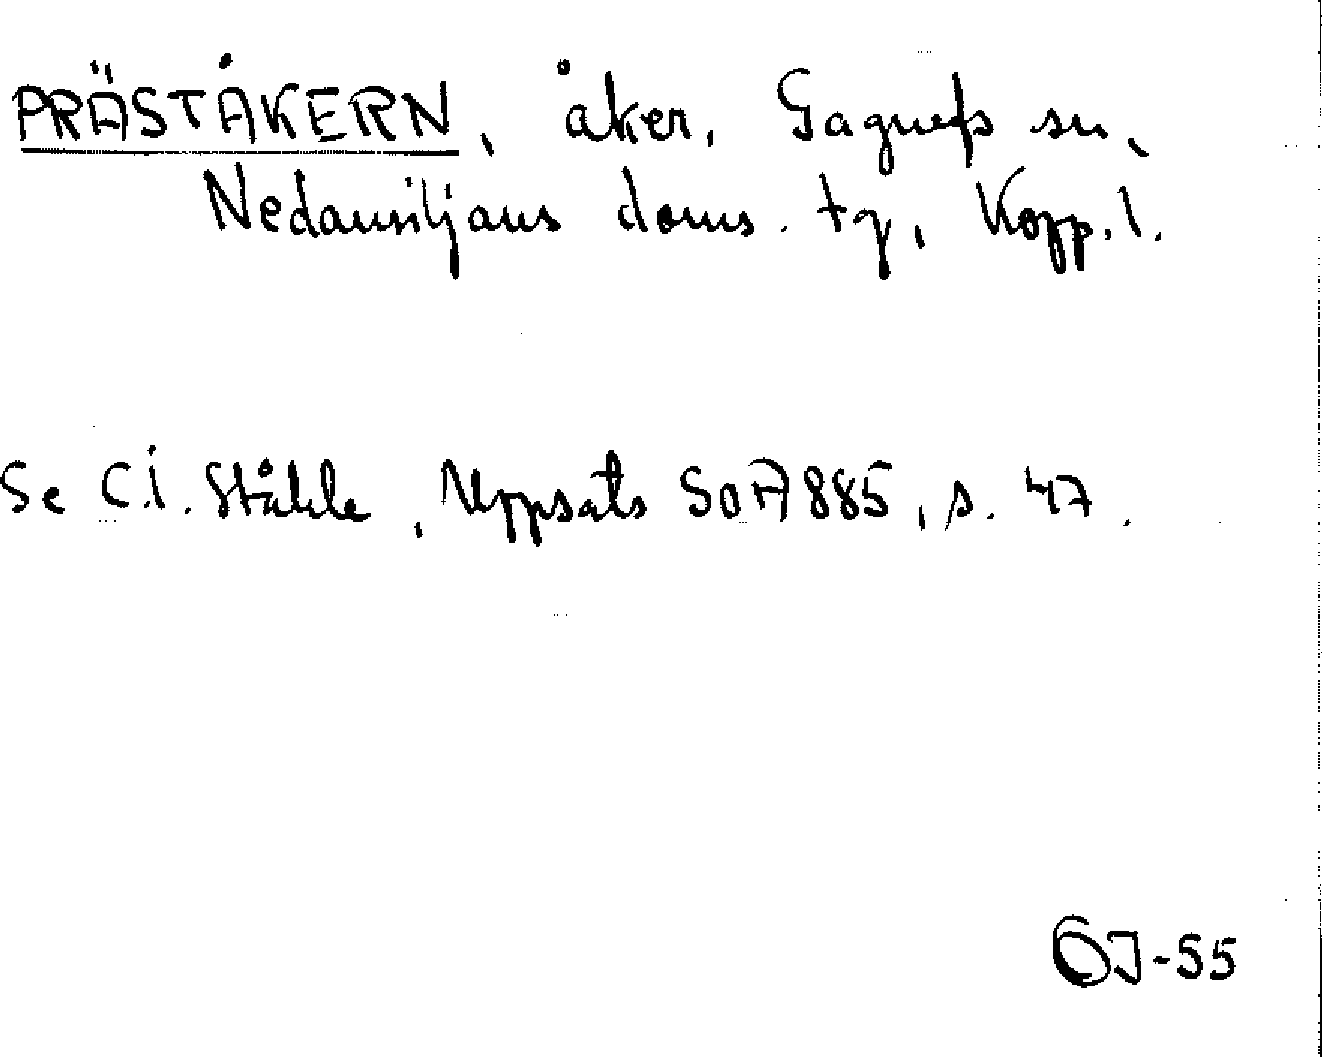 PRÄSTÅKERN, åker, Gagnefs sn,
Nedansiljans doms. tg, Kopp. l.
Se C.I. Ståhle, Uppsats SOA 885, s. 47.
ÖJ-55